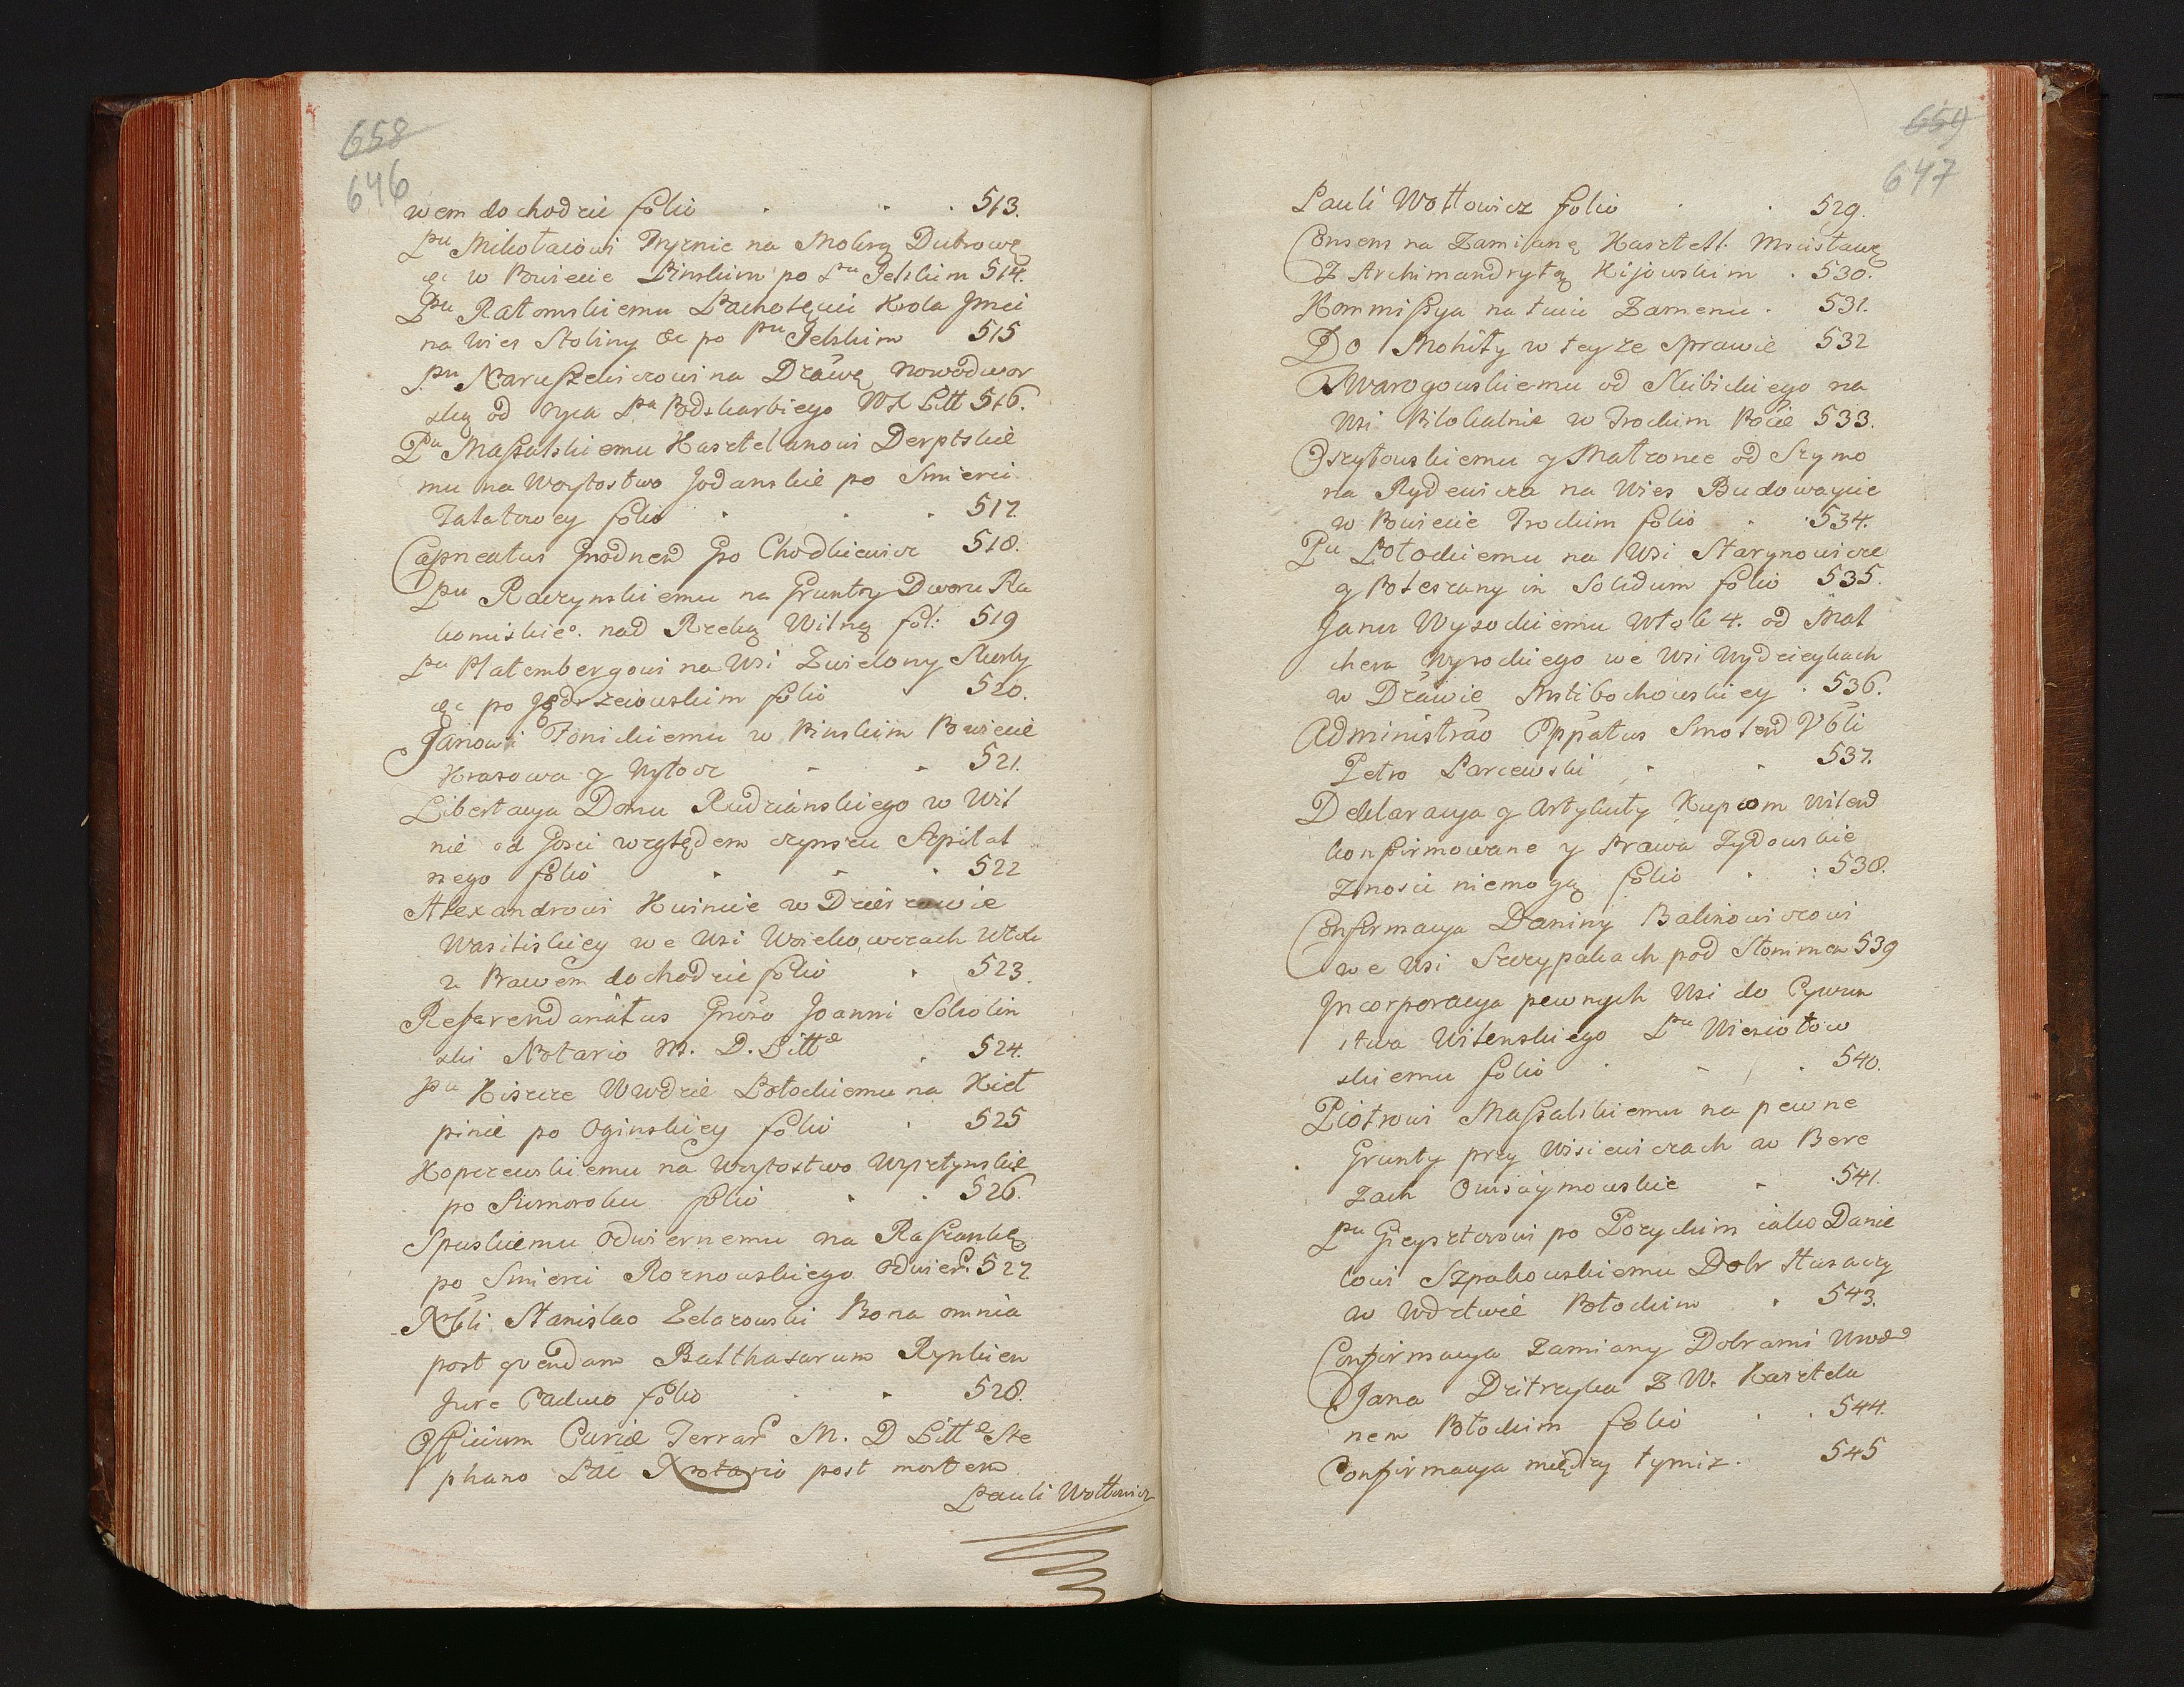 658
646
wem dochodzie folio . . . 513.
Pu Mikołaiowi Pryznie na Mokrą Dubrowę
&c w Powiecie Pinskim po Pu Jelskim 514.
Pu Ratomskiemu Pachołęciu Krola Jmci
na Wies Stoliny &c po Pu Jelskim 515
Pu Naruszewiczowi na Dzāwę Nowodwor
ską od Oyca Pa Podskarbiego WX Litt 516.
Pu Massalskiemu Kasztelanowi Derptskie
mu na Woytostwo Jodanskie po Smierci
Talatowey folio . . . 517.
Capneatus Grodnen Gō Chodkiewicz 518.
Pu Raczynskiemu na Grunty Dworu Ra
komiskieo. nad Rzeką Wilną fol: 519
Pu Platembergowi na Wsi Zwielony Skurby
&c po Jędrzeiowskim folio . 520.
Janowi Fonickiemu w Pinskim Powiecie
Krasowa y Wyłocz . . 521.
Libertacya Domu Rudzianskiego w Wil
nie od Gosci względem czynszu Szpital
nego folio . . . 522
Alexandrowi Kusince w Dzierzawie
Wasiliskiey we Wsi Woiekowcach Włok
2 Prawem dochodzie folio . 523.
Referendariātus Gnōso Joanni Sokolin
ski Notario M. D. Littæ . 524.
Pu Kiszcze Wwdzie Połockiemu na Kieł
pinie po Oginskiey folio . 525
Kopczewskiemu na Woytostwo Wysztynskie
po Sumoroku folio . . 526.
Spuskiemu Odwiernemu na Raszankę
po Smierci Roznowskiego Odwier. 527
Nōbli Stanislao Zelazowski Bona omnia
post quendam Balthasarum Rynkien
Jure Caduco folio . . 528.
Officium Curiæ Terrar M. D Littæ Ste
phano Pac Notario post mortem
Pauli Wołłowicz
659
647
Pauli Wołłowicz folio . . 529.
Consens na Zamianę Kasztell: Mscisławę
Z Archimandrytą Kijowskim . 530.
Kommissya na tuiu Zamenu . 531.
Do Mohiły w teyze Sprawie 532
Swarogowskiemu od Skibickiego na
Wsi Bilokalnie w Trockim Pōcie 533.
Oszytowskiemu y Matronce od Szymo
na Rydewicza na Wies Budowaycie
w Powiecie Trockim folio . 534.
Pu Połockiemu na Wsi Starynowicze
y Poteszany in Solidum folio 535.
Janu Wysockiemu Włok 4. od Mal
chera Wysockiego we Wsi Wydzieykach
w Dzāwie Mstibochowskiey . 536.
Administrāo Eppātus Smolen Vōli
Petro Parcewski . . 537.
Deklaracya y Artykuły Kupcom Wilen
konfirmowane y Prawa Zydowskie
Znosic niemogą folio . : 538.
Confirmacya Daniny Balinowiczowi
we Wsi Szczypakach pod Słonimem 539
Jncorporacya pewnych Wsi do Cywun
stwa Wilenskiego Pu Wiesiołow
skiemu folio . . . 540.
Piotrowi Massalskiemu na pewne
Grunty przy Wisiewiczach w Bere
zach Owsaymowskie . 541.
Pu Gieysztorowi po Porzyckim iako Danie
lowi Szpakowskiemu Dobr Husaczy
w Wdztwie Połockim . 543.
Confirmacya Zamiany Dobrami Wwdo
Jana Dzitrzyka Z W. Kasztela
nem Połockim folio . . 544.
Confirmacya między tymiz . 545